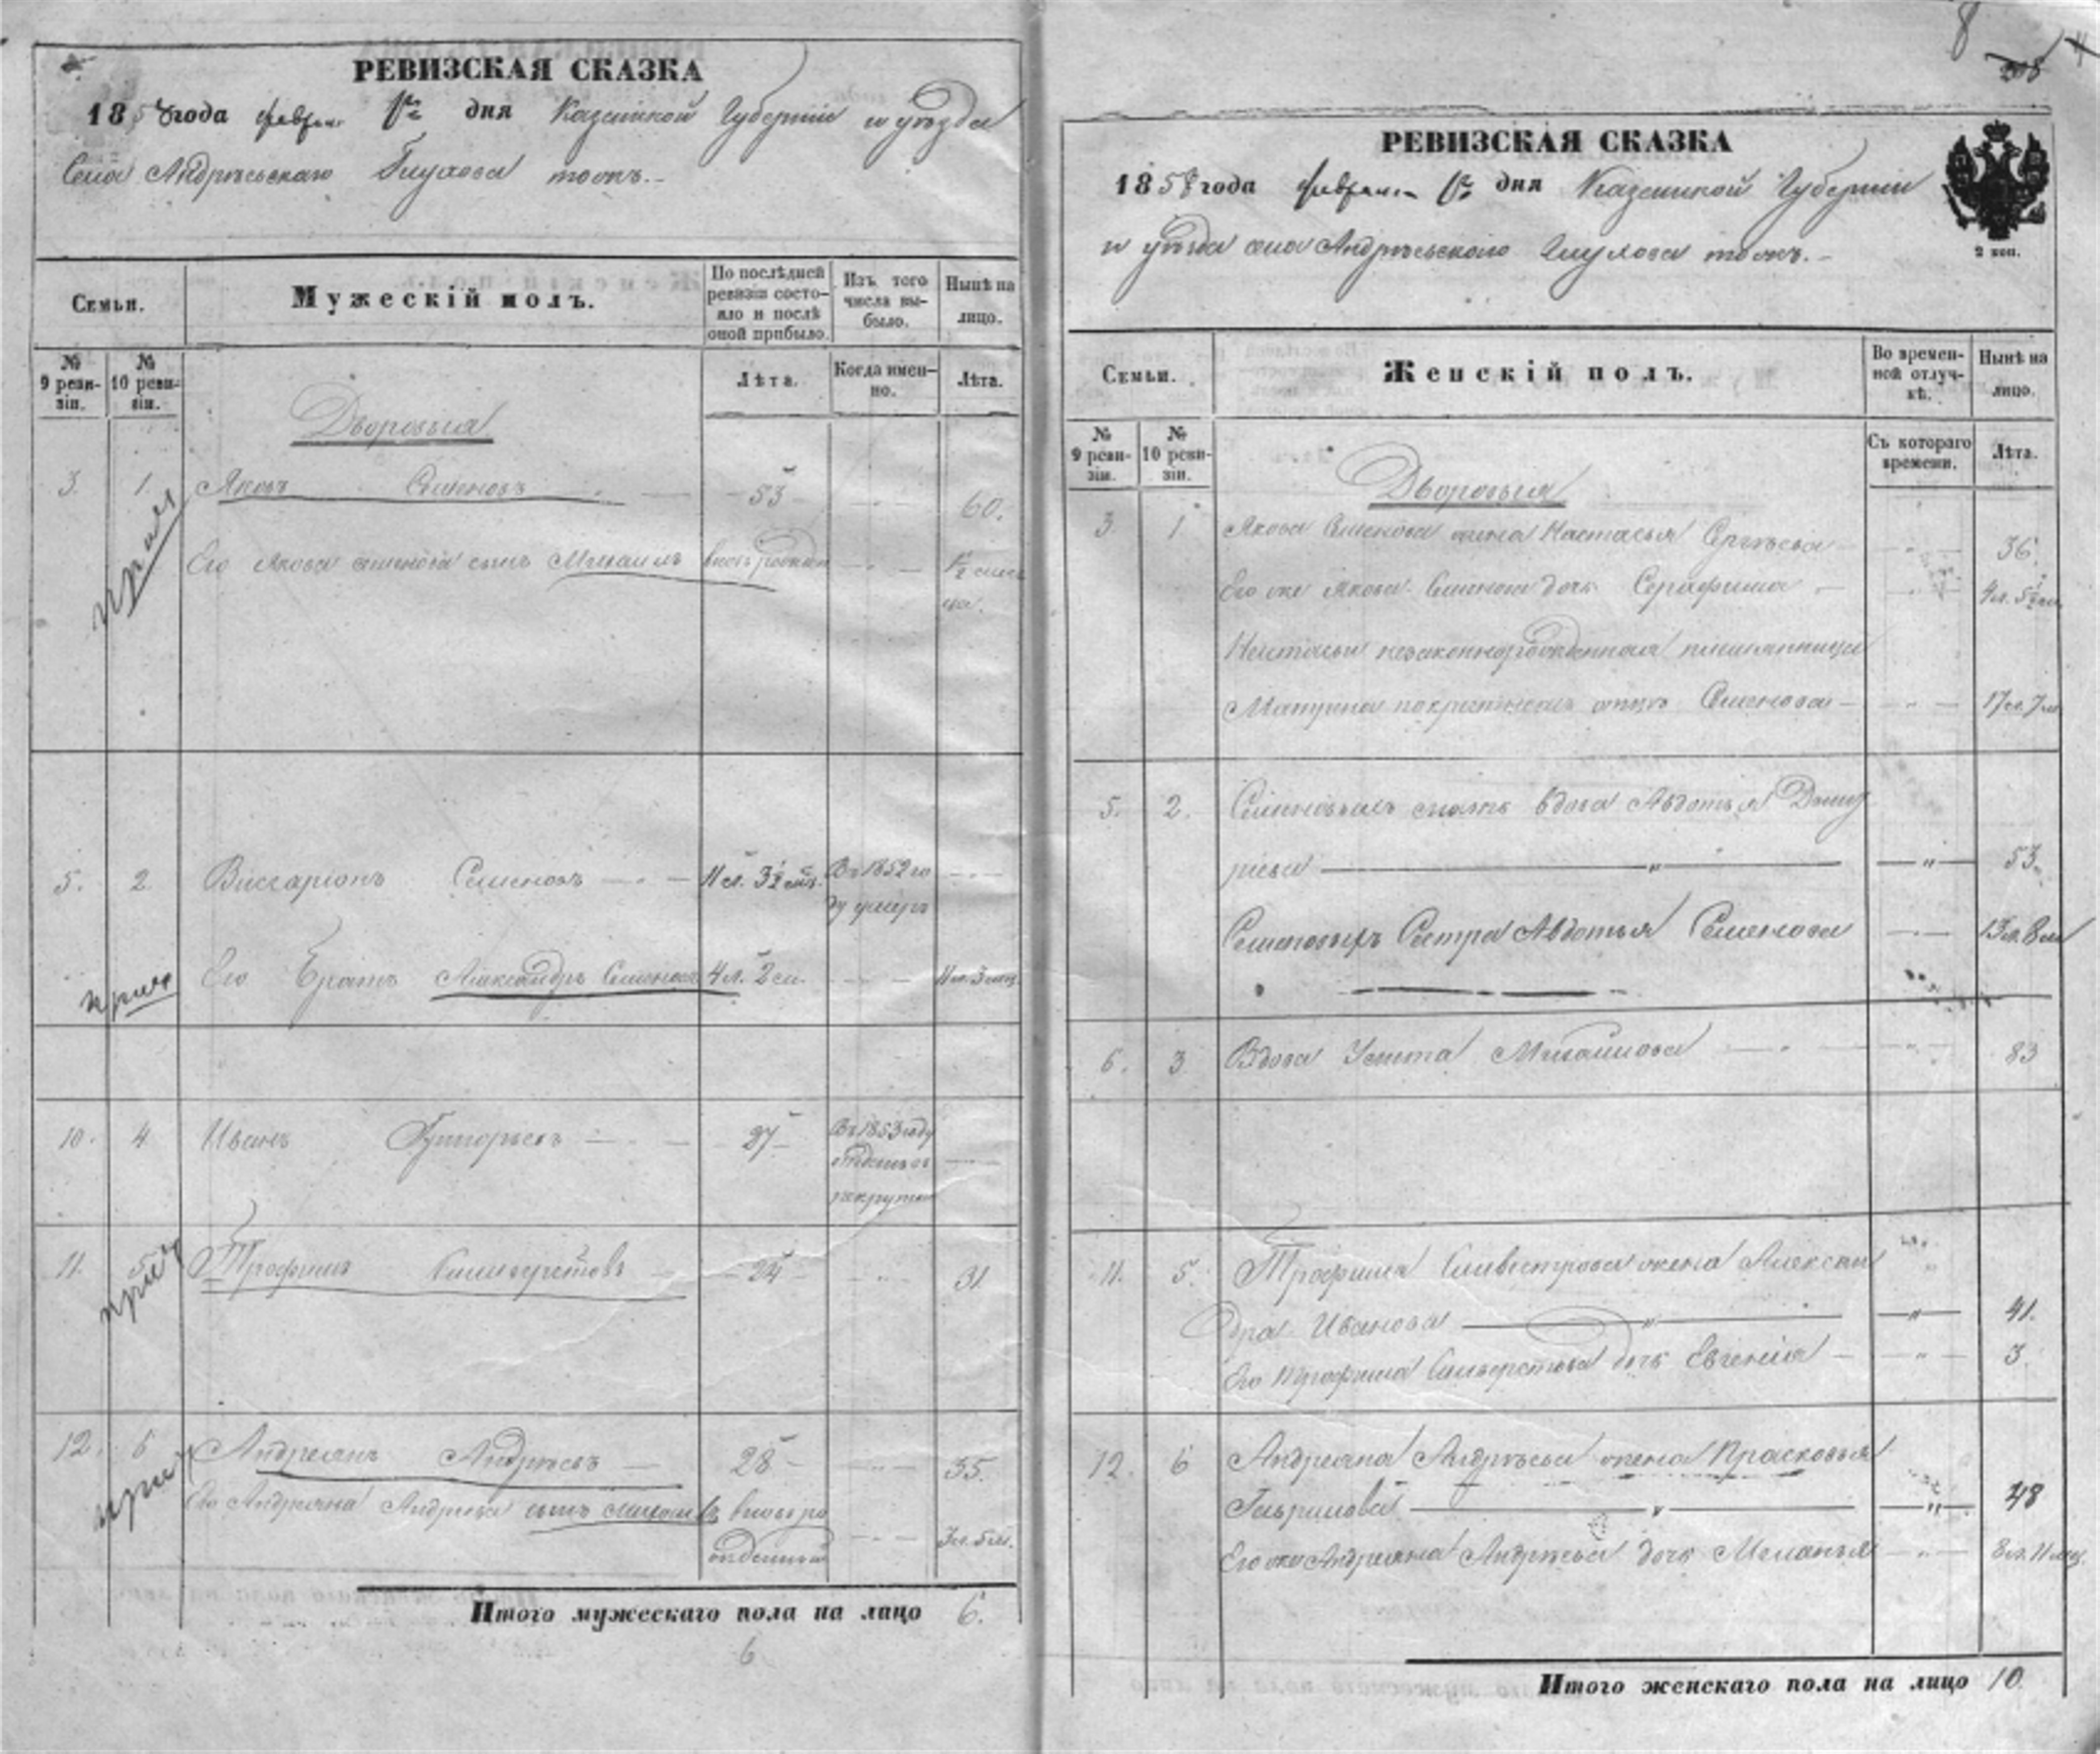 РЕВИЗСКАЯ СКАЗКА
1858 года февраля 1го дня Казанской Губерніи и уѣзда
Села Андреевскаго тожъ.
Семьи.
Мужескій полъ.
По послѣдней ревизіи состояло и послѣ оной прибыло.
Изъ того числа выбыло.
Нынѣ на лицо.
№ 9 ревизіи.
№ 10 ревизіи.
Лѣта.
Когда именно.
Лѣта.
Дворовыя
3. 1. Яковъ Семеновъ 53 60.
Его Якова Семенова сынъ Михаилъ вновь рожден
5. 2. Виссаріонъ Семеновъ 11 л. 3½ м. Въ 1852 го
ду умеръ
Его братъ Александръ Семеновъ 4 л. 2 м. 11 л. 3 мѣс.
10. 4 Иванъ Григорьевъ 27 Въ 1853 году
отданъ въ
рекруты
11. 5 Трофимъ Сильверстовъ 24 31
12. 6 Андреянъ Андреевъ 28 35.
Его Андреяна Андреева сынъ вновь ро
жденный 3 л. 5 м.
Итого мужескаго пола на лицо 6.
6
8
РЕВИЗСКАЯ СКАЗКА
1858 года февраля 1го дня Казанской Губерніи
и уѣзда села Андреевскаго тожъ.
2 коп.
Семьи.
Женскій полъ.
Во временной отлучкѣ.
Нынѣ на лицо.
№ 9 ревизіи.
№ 10 ревизіи.
Съ котораго времени.
Лѣта.
Дворовыя
3. 1 Якова Семенова жена Настасья Сергѣева 36.
Его же Якова Семенова дочь Серафима 4 л. 5½ м.
Настасьи незаконнорожденная племянница
Матрена Семенова 17 л. 7 м.
5. 2. Семеновыхъ мать вдова Авдотья Дмит
ріева 53.
Семеновыхъ Сестра Авдотья Семенова 13 л. 8 м.
6. 3 Вдова Улита Михайлова 83
11. 5. Трофима Сильвестрова жена Алексан
дра Иванова 41.
Его Трофима Сильверстова дочь Евгенія 3.
12. 6 Андреяна Андреева жена Прасковья
Гаврилова 48
Его же Андреяна Андреева дочь Меланья 8 л. 11 мѣс.
Итого женскаго пола на лицо 10